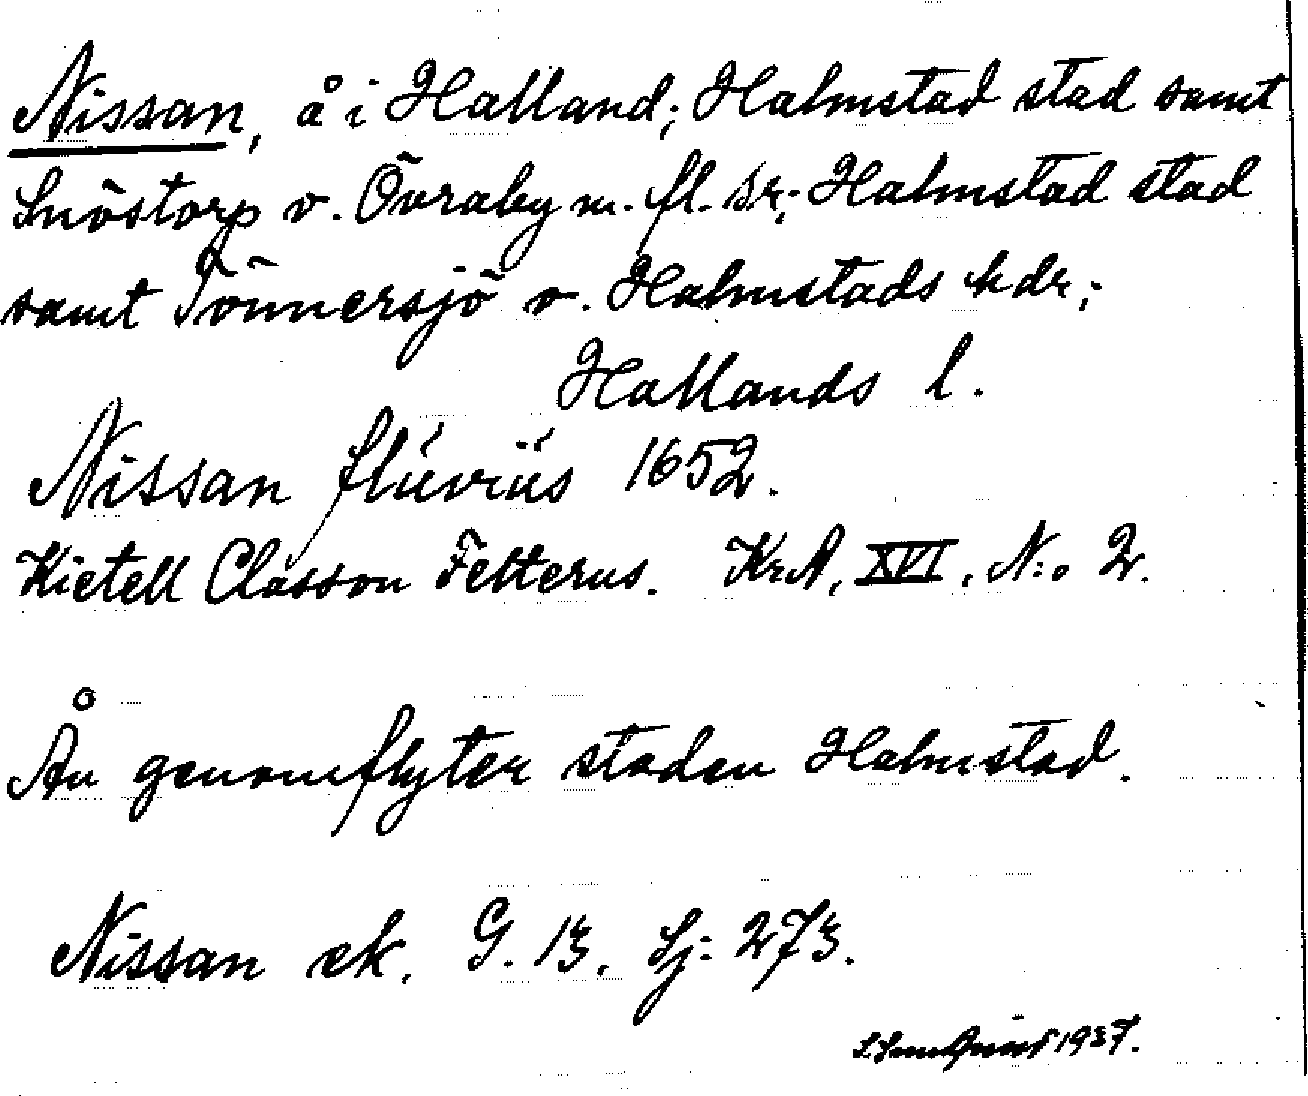 Nissan, å i Halland; Halmstad stad samt
Snöstorp o. Övraby m. fl. sr; Halmstad stad
samt Tönnersjö o. Halmstads hdr;
Hallands l.
Nissan flúviús 1652.
Kietell Clässon Felterus. KrA, XVI, N:o 2.
Ån genomflyter staden Halmstad.
Nissan ek. G. 13. Lj: 273.
1937.